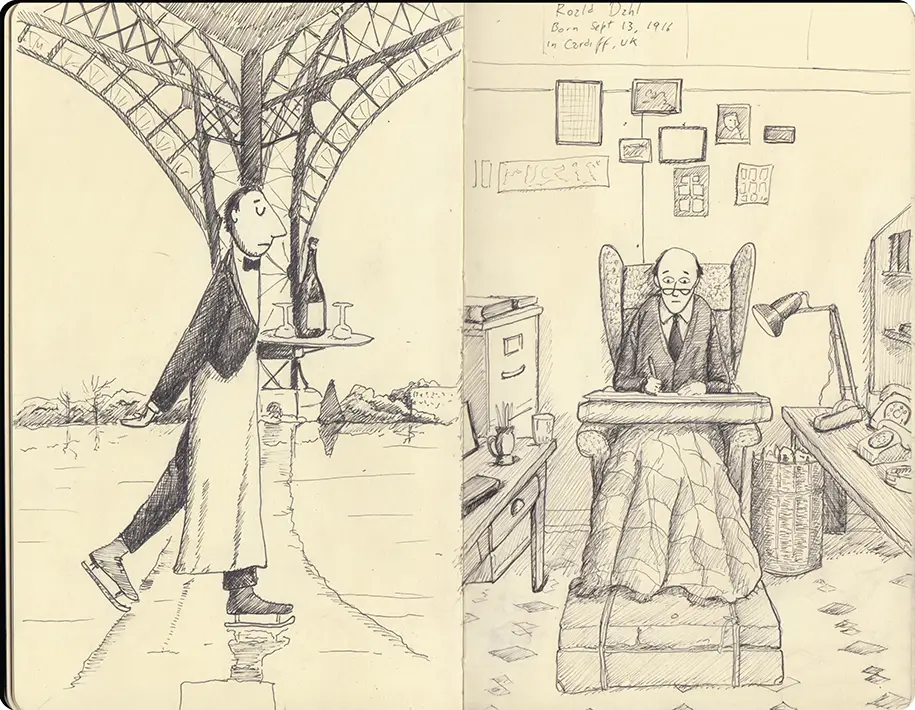 Roald Dahl
Born Sept 13, 1916
in Cardiff, UK